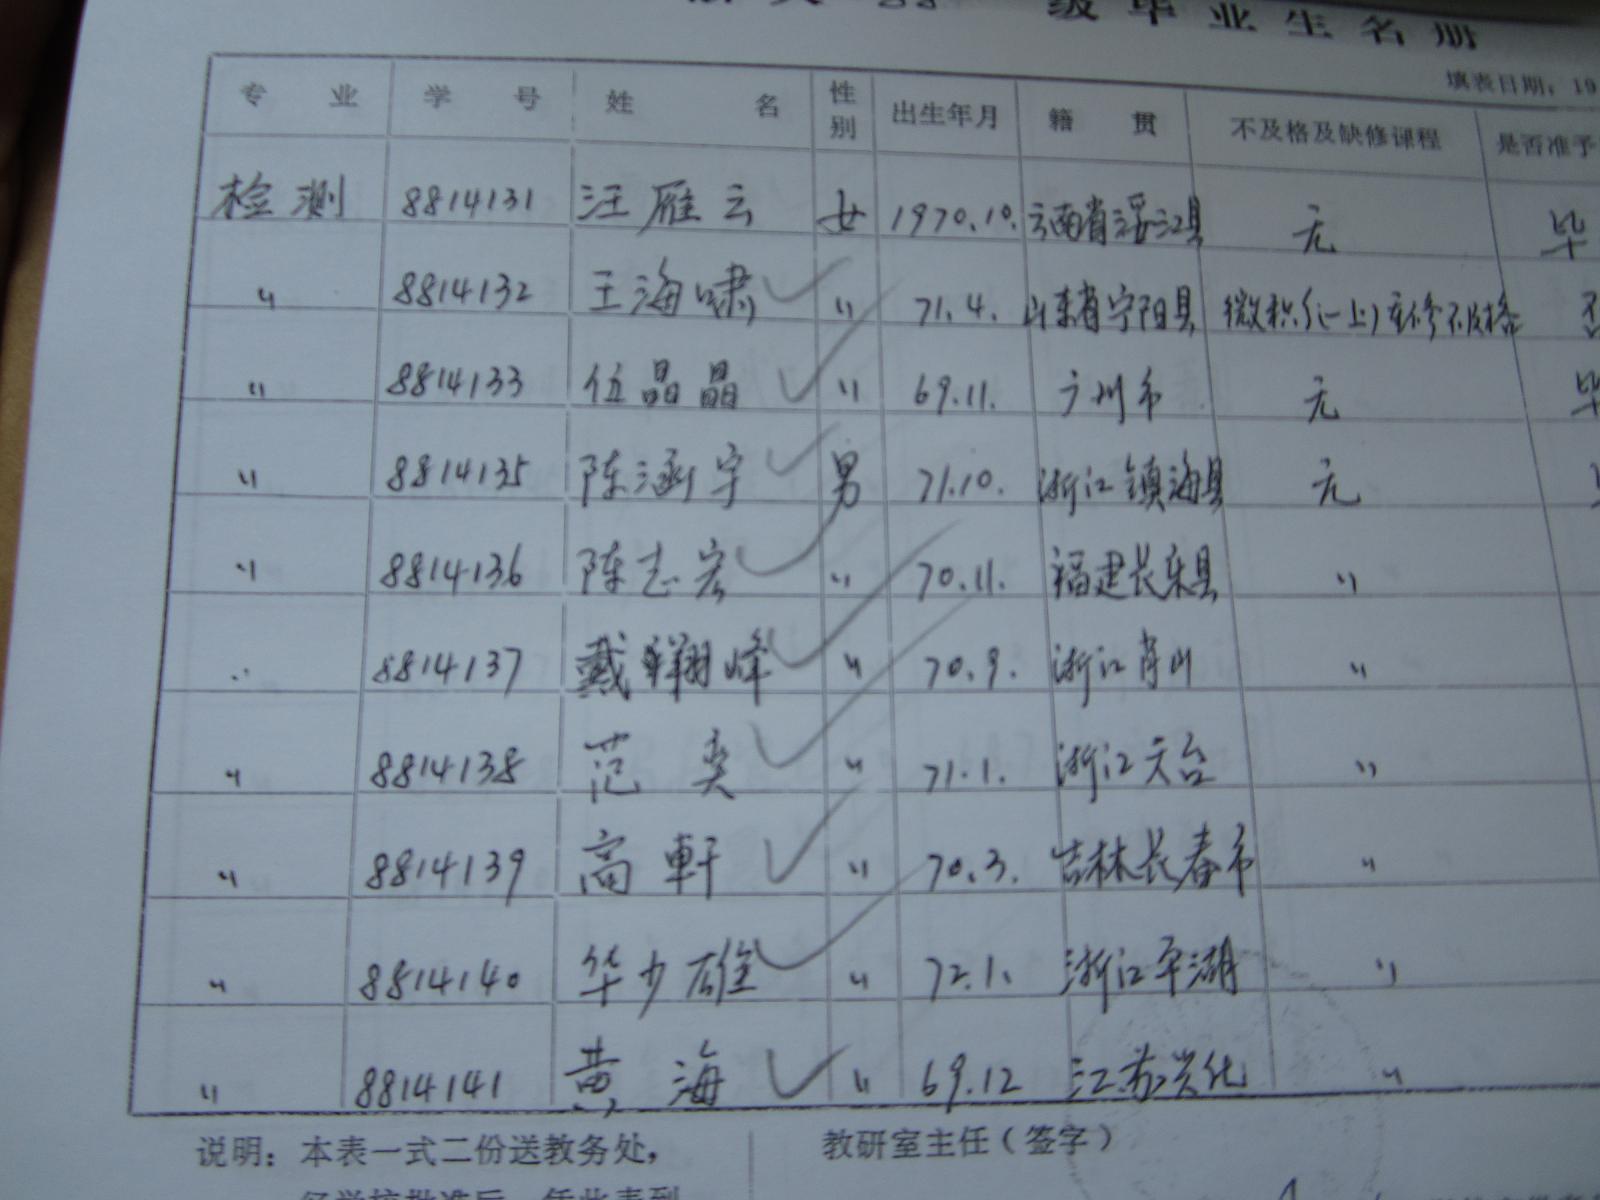 级毕业生名册
填表日期：19
专业 学号 姓名 性别 出生年月 籍贯 不及格及缺修课程 是否准予
检测 8814131 汪雁云 女 1970.10. 云南省绥江县 无 毕
〃 8814132 王海啸 〃 71.4. 山东省宁阳县 微积分(一上)重修不及格 否
〃 8814133 伍晶晶 〃 69.11. 广州市 无 毕
〃 8814135 陈涵宇 男 71.10. 浙江镇海县 无
〃 8814136 陈志宏 〃 70.11. 福建长乐县 〃
〃 8814137 戴翔峰 〃 70.9. 浙江肖山 〃
〃 8814138 范奕 〃 71.1. 浙江天台 〃
〃 8814139 高軒 〃 70.3. 吉林长春市 〃
〃 8814140 华少雄 〃 72.1. 浙江平湖 〃
〃 8814141 黄海 〃 69.12 江苏兴化 〃
说明：本表一式二份送教务处， 教研室主任（签字）